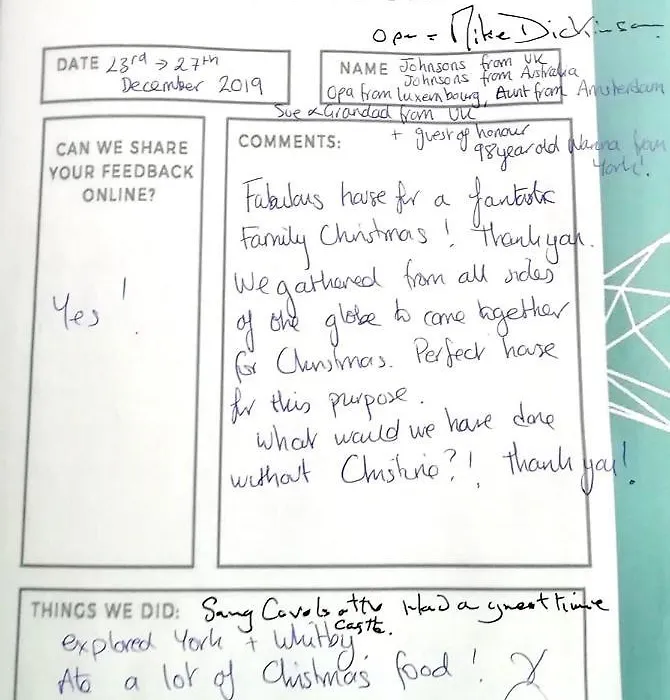 Opa = Mike Dickinson
DATE 23rd → 27th
December 2019
NAME Johnsons from UK
Johnsons from Australia
Opa from Luxembourg, Aunt from Amsterdam
Sue & Grandad from UK
+ guest of honour
98 year old Nanna from
York!
CAN WE SHARE
YOUR FEEDBACK
ONLINE?
Yes!
COMMENTS:
Fabulous house for a fantastic
Family Christmas! Thank you.
We gathered from all sides
of the globe to come together
for Christmas. Perfect house
for this purpose.
What would we have done
without Christine?! Thank you!
THINGS WE DID: Sang Carols at the Had a great time
Castle.
explored York + Whitby.
Ate a lot of Christmas food!